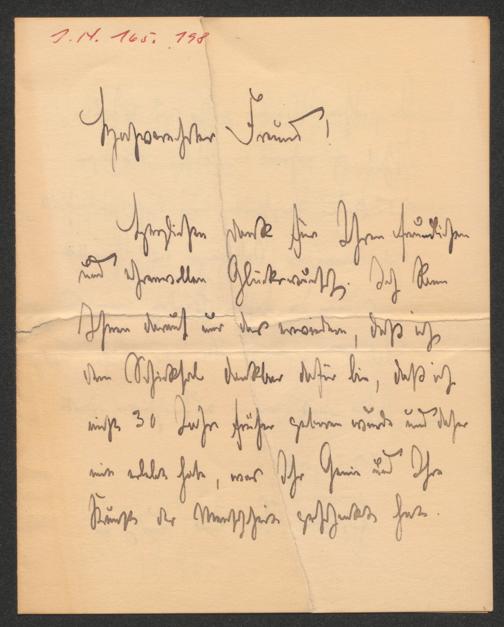 J.N. 165.198
Hochverehrter Freund!
Herzlichen Dank für Ihren freundlichen
und ehrenvollen Glückwunsch. Ich kann
Ihnen darauf nur das erwiedern, daß ich
dem Schicksal dankbar dafür bin, daß ich
nicht 30 Jahre früher geboren wurde und daher
mit erlebt habe, was Ihr Genie und Ihre
Kunst der Menschheit geschenkt hat.